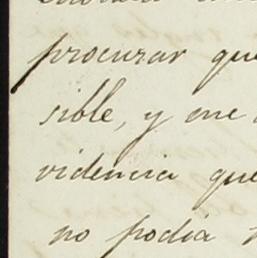 procurar que
sible, y me
videncia que
no podia